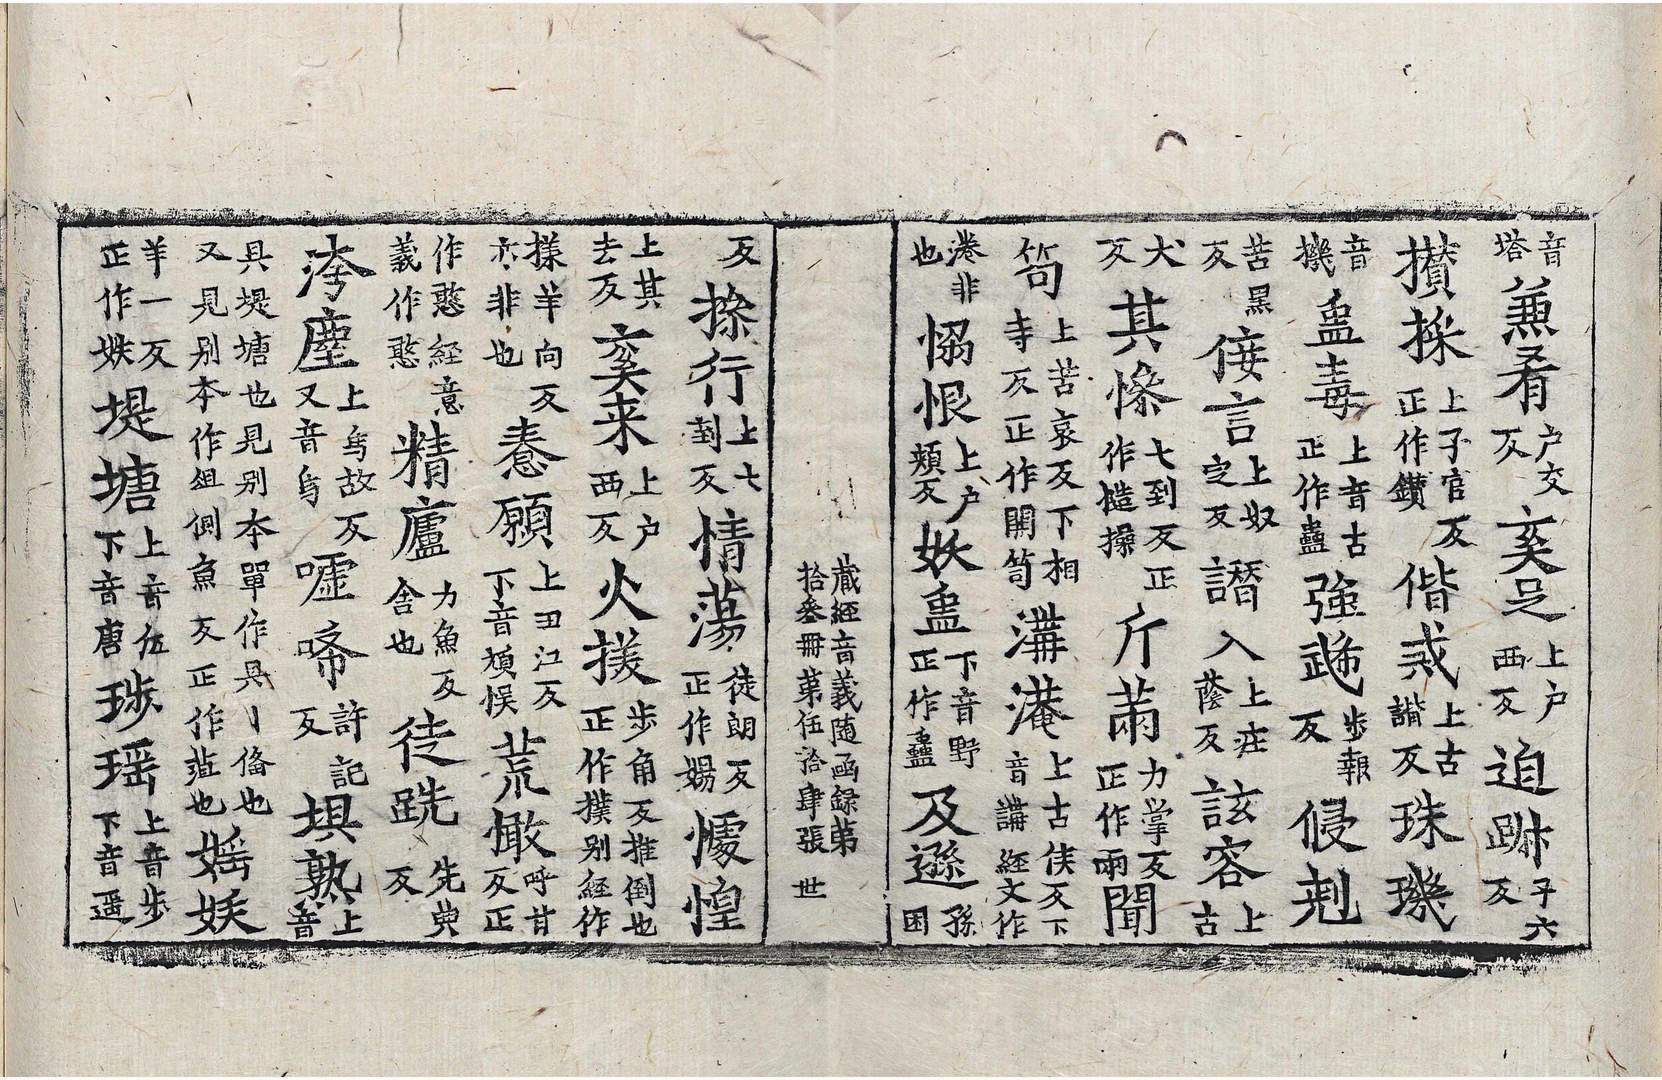 音塔兼肴户交反奚足上户西反迫踿子六反
攅採上子官反正作鑚偕戒上古諧反珠璣
音機蛊毒上音古正作蠱強䟦步報反侵剋
苦黑反侫言上奴定反譖入上庄蔭反該容上古
犬反其慘七到反正作慥操斤萳力掌反正作兩聞
笥上苦哀反下相寺反正作開笥溝港上古侯反下音講經文作
港非也惱恨上户頬反妖蛊下音野正作蠱及遜孫困
藏經音義随函録第拾叄冊第伍拾肆張世
反操行上七到反情蕩徒朗反正作婸懅惶
上其去反奚来上户西反火撲步角反推倒也正作撲别經作
㨾羊向反亦非也惷願上丑江反下音頑悮荒憨呼甘反正
作憨經意義作憨精廬力魚反舍也徒跣先典反
洿塵上烏故反又音烏嘘唏許記反埧熟上音
具堤塘也見别本單作具刂俻也又見别本作俎側魚反正作葅也媱妖
羊一反正作妷堤塘上音伍下音唐㻉瑶上音步下音遥